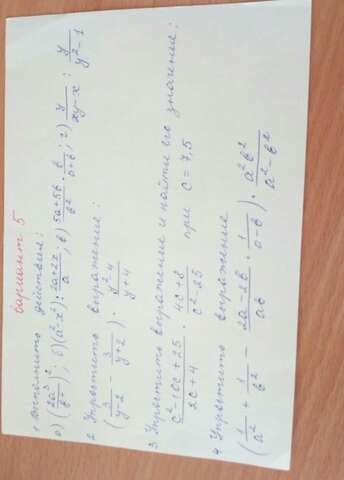 Вариант 5
1. Выполнить действия:
а) (2a³/b⁴)²; б) (a²-x²) : 2a+2x/a; в) 5a+5b/b² · b/a+b; г) y/xy-x : y/y²-1
2. Упростить выражение:
(3/y-2 - 3/y+2) · y²-4/y+4
3. Упростить выражение и найти его значение:
c²-10c+25/2c+4 · 4c+8/c²-25 при c = 7,5
4. Упростить выражение
(1/a² + 1/b² - 2a-2b/ab · 1/a-b) · a²b²/a²-b²